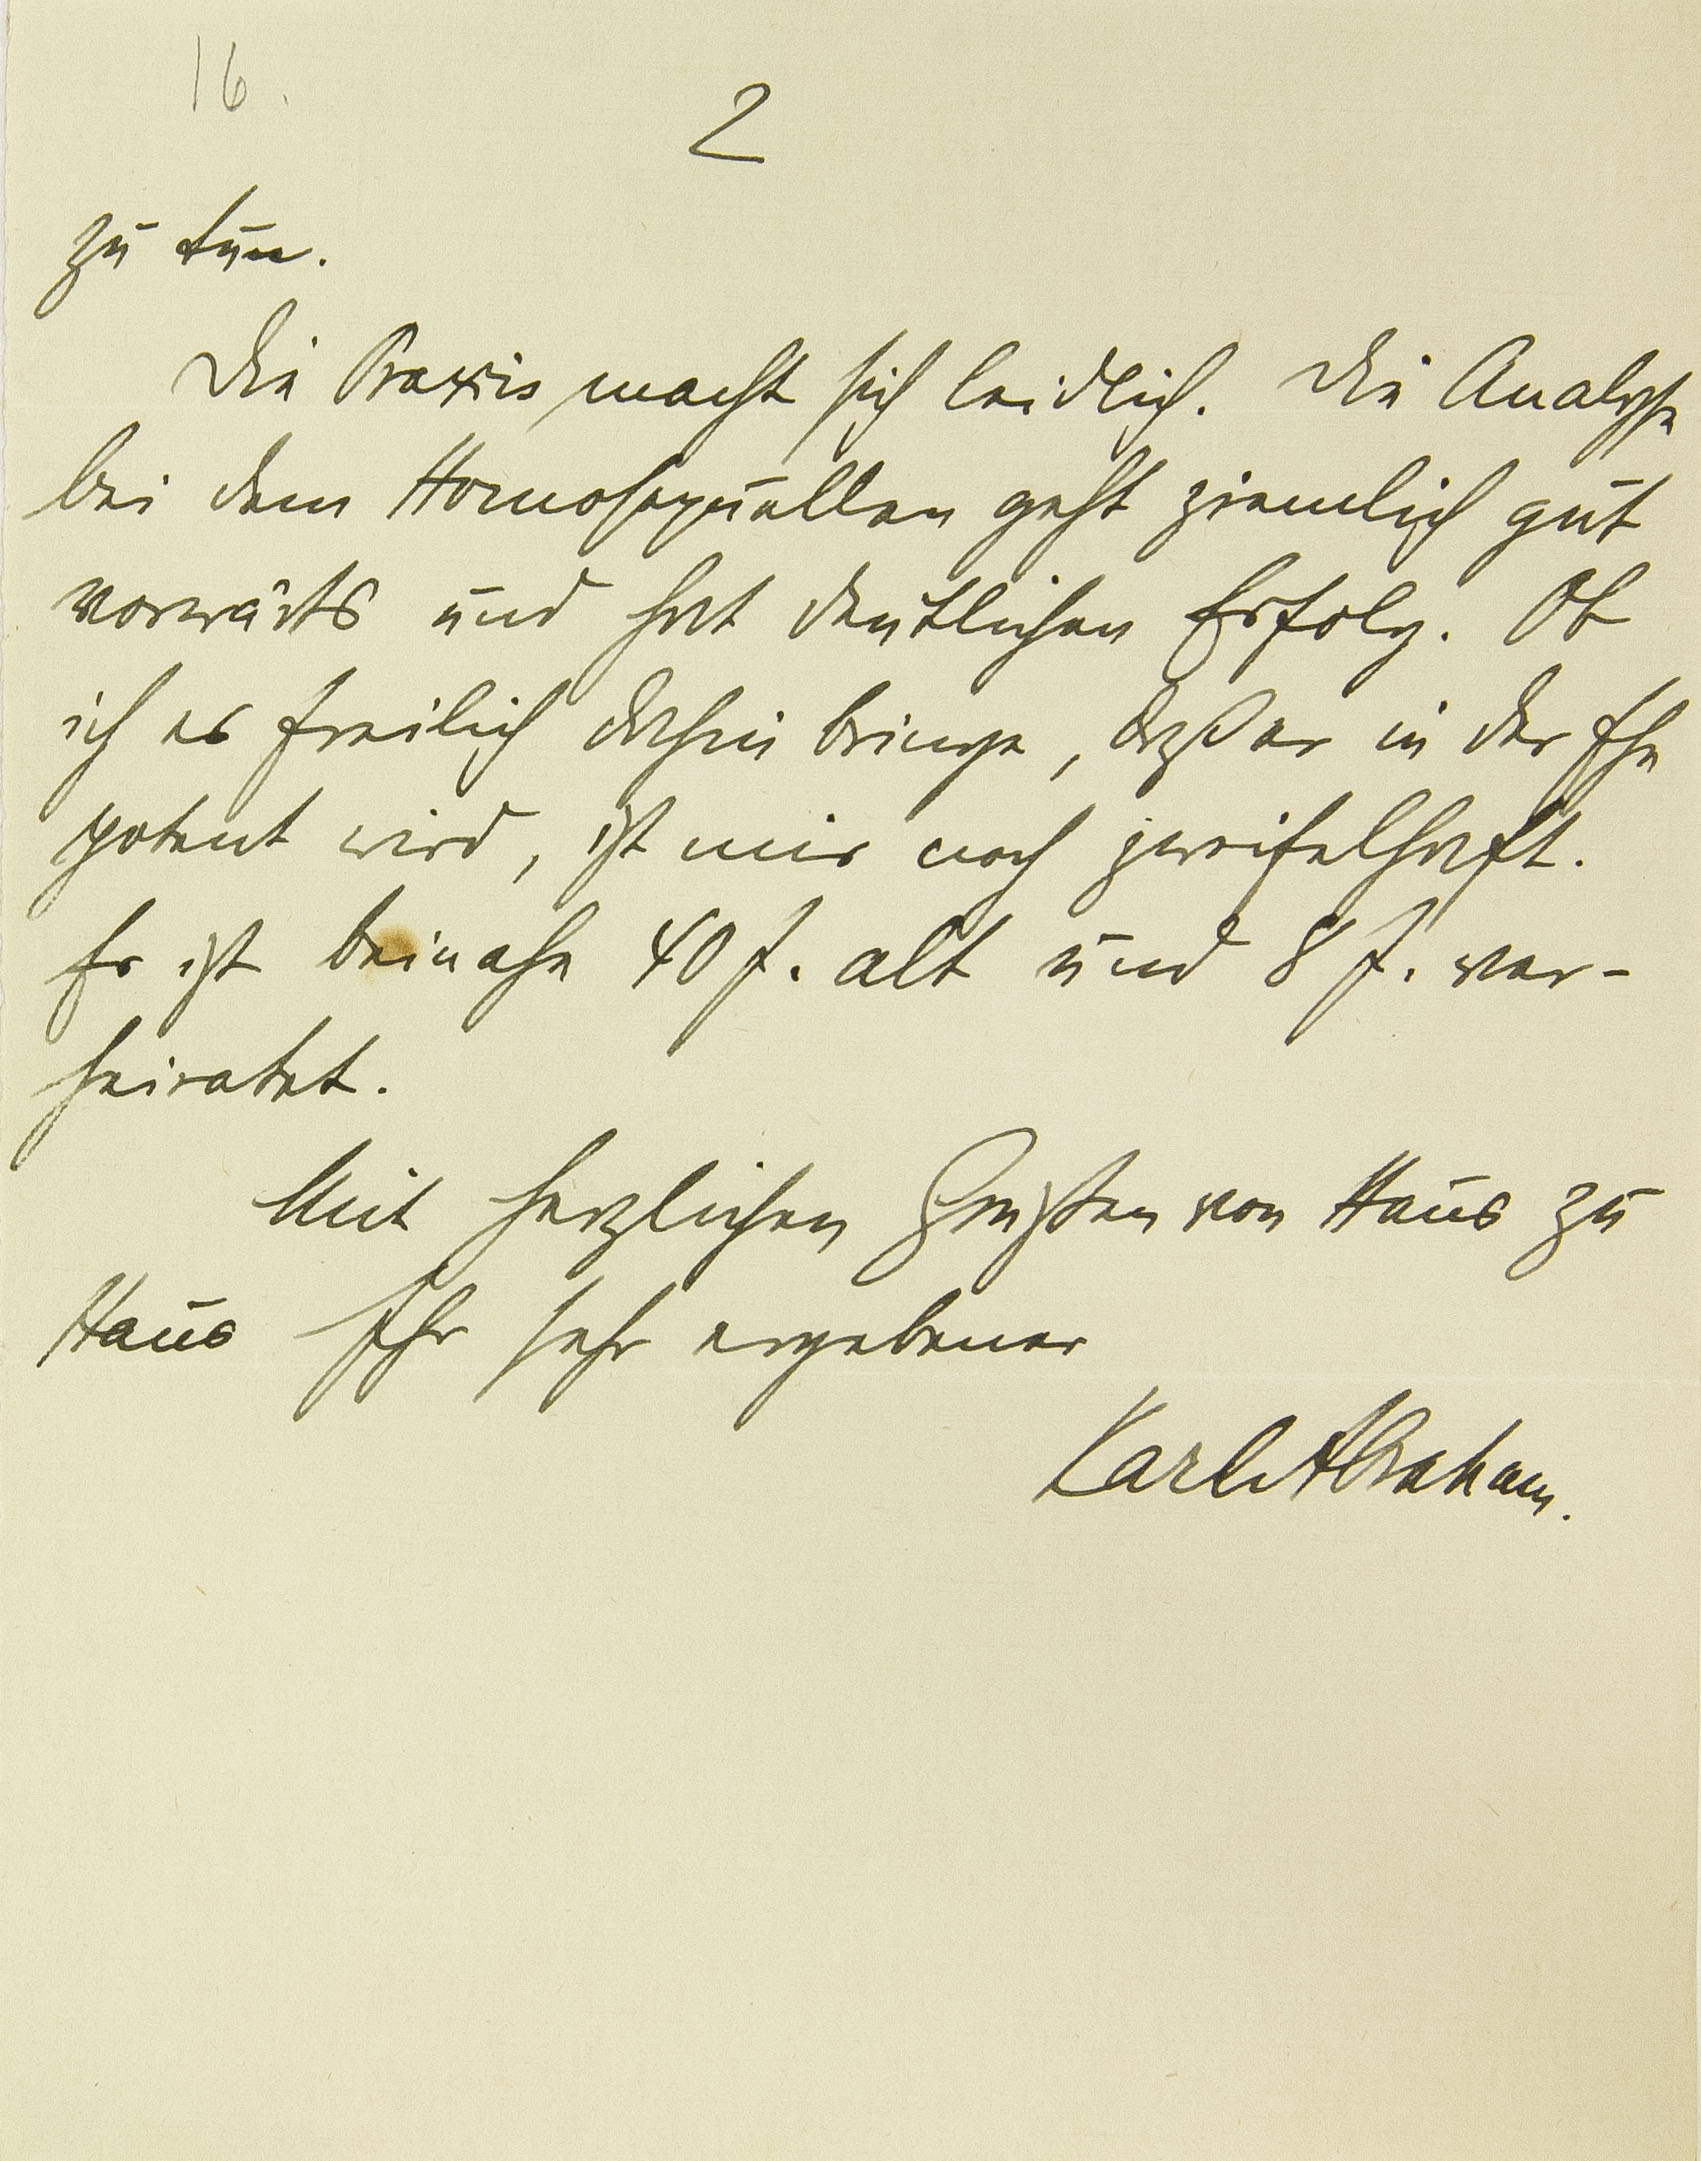 16.
2
zu tun.
Die Praxis macht sich leidlich. Die Analyse
bei dem Homosexuellen geht ziemlich gut
vorwärts und hat deutlichen Erfolg. Ob
ich es freilich dahin bringe, daß er in der Ehe
potent wird, ist mir noch zweifelhaft.
Er ist beinahe 40 J. alt und 8 J. ver-
heiratet.
Mit herzlichen Grüßen von Haus zu
Haus Ihr sehr ergebener
Karl Abraham.